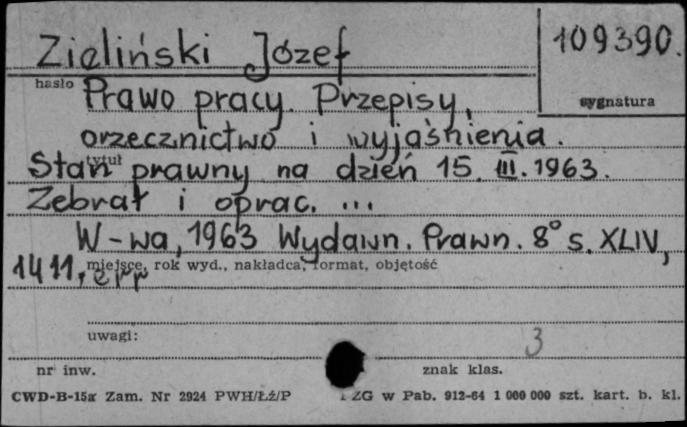 Zieliński Józef
109390.
hasło
sygnatura
Prawo pracy. Przepisy,
orzecznictwo i wyjaśnienia.
tytuł
Stan prawny na dzień 15. III. 1963.
Zebrał i oprac. ...
W-wa, 1963 Wydawn. Prawn. 8° s. XLIV,
miejsce, rok wyd., nakładca, format, objętość
1411, err
uwagi:
3
nr inw.
znak klas.
CWD-B-15a Zam. Nr 2924 PWH/Łź/P
ZG w Pab. 912-64 1 000 000 szt. kart. b. kl.